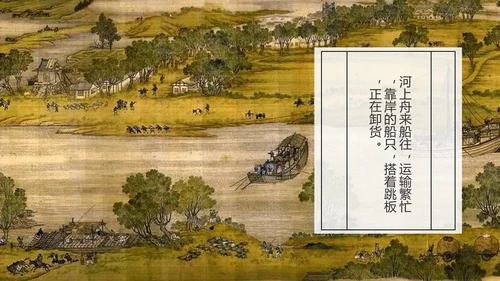 河上舟来船往，运输繁忙
，靠岸的船只，搭着跳板
，正在卸货。